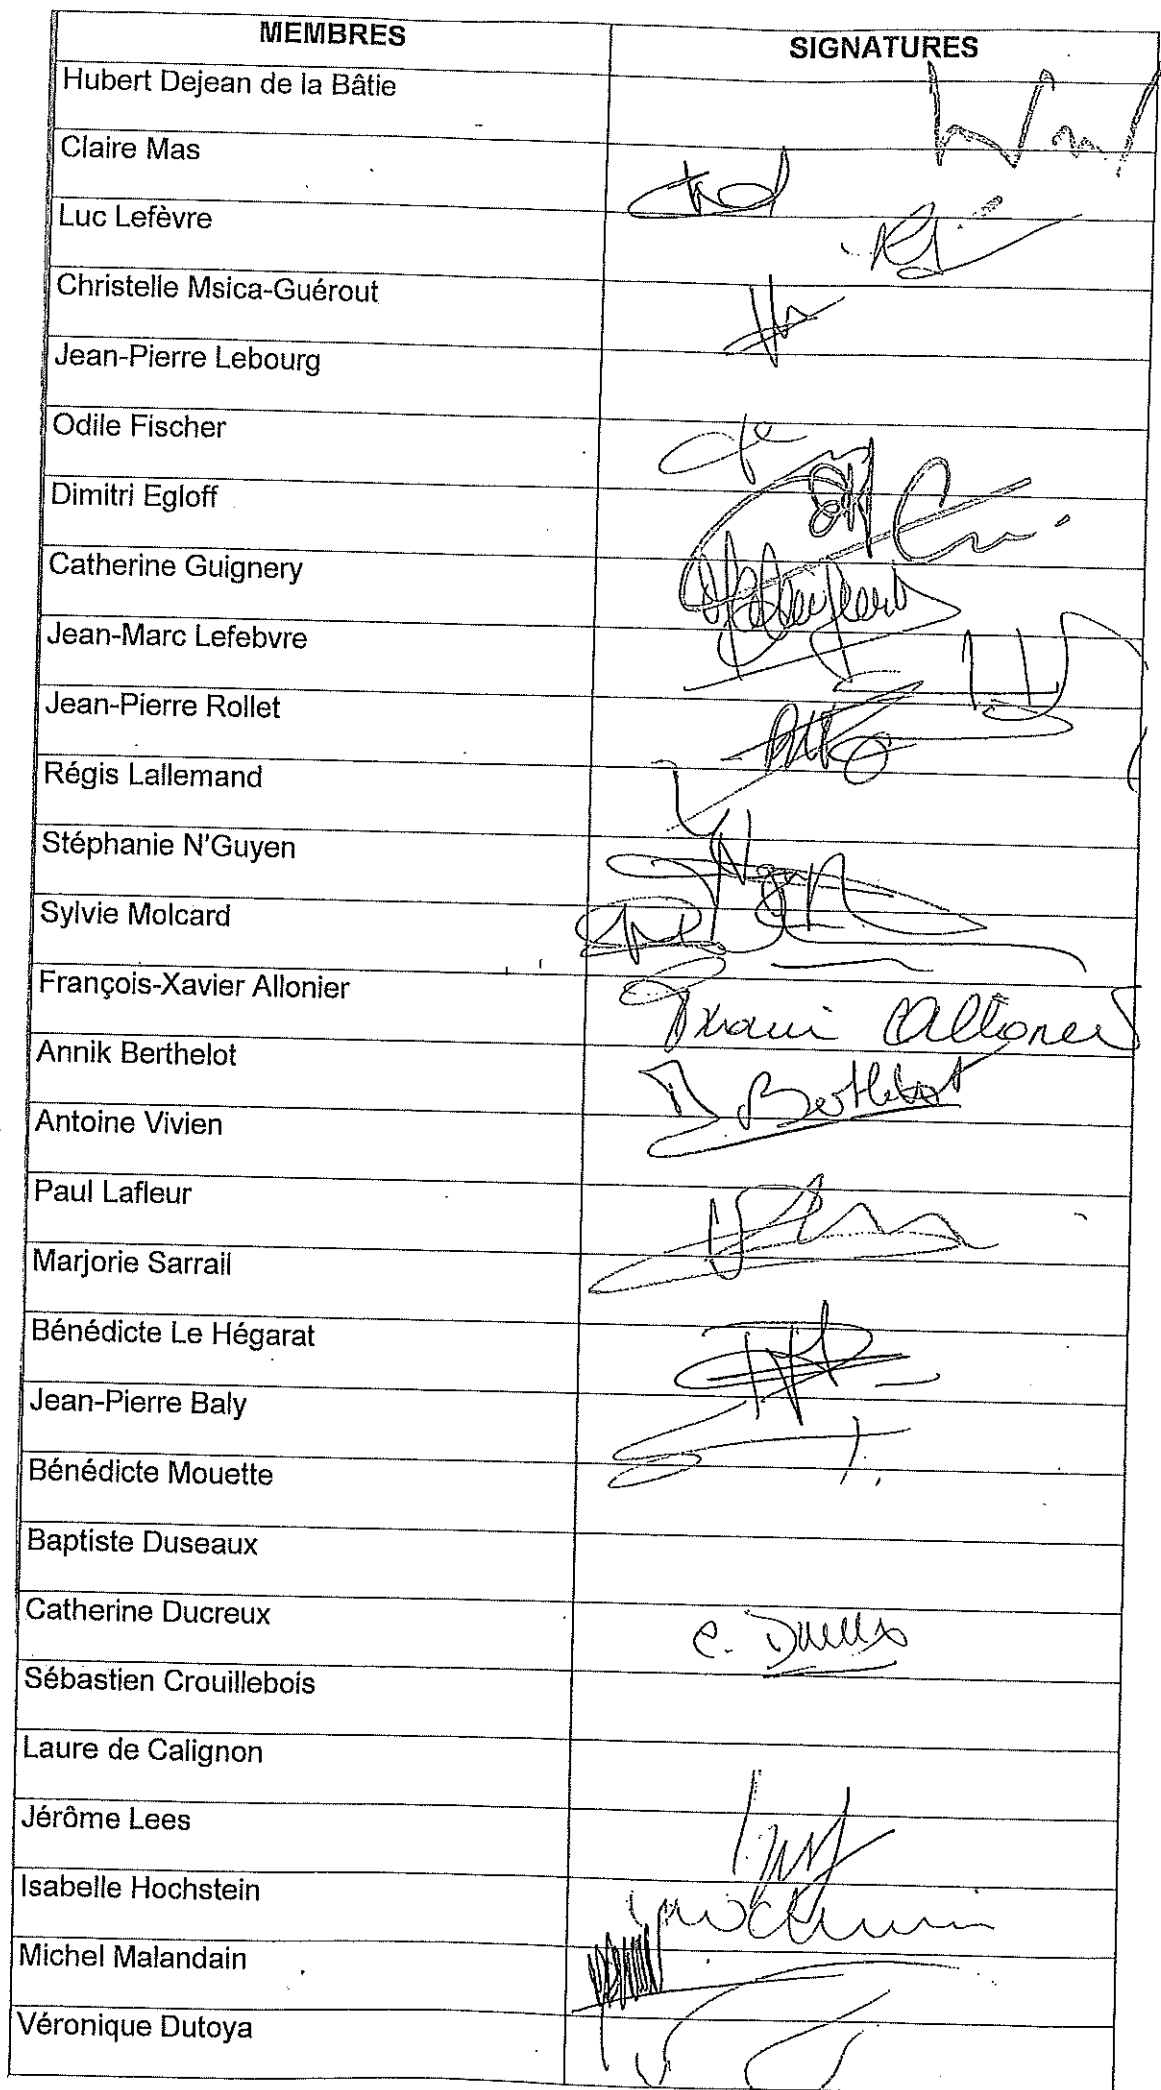 MEMBRES SIGNATURES
Hubert Dejean de la Bâtie
Claire Mas
Luc Lefèvre
Christelle Msica-Guérout
Jean-Pierre Lebourg
Odile Fischer
Dimitri Egloff
Catherine Guignery
Jean-Marc Lefebvre
Jean-Pierre Rollet
Régis Lallemand
Stéphanie N'Guyen
Sylvie Molcard
François-Xavier Allonier
Annik Berthelot Berthelot
Antoine Vivien
Paul Lafleur
Marjorie Sarrail
Bénédicte Le Hégarat
Jean-Pierre Baly
Bénédicte Mouette
Baptiste Duseaux
Catherine Ducreux
Sébastien Crouillebois
Laure de Calignon
Jérôme Lees
Isabelle Hochstein
Michel Malandain
Véronique Dutoya